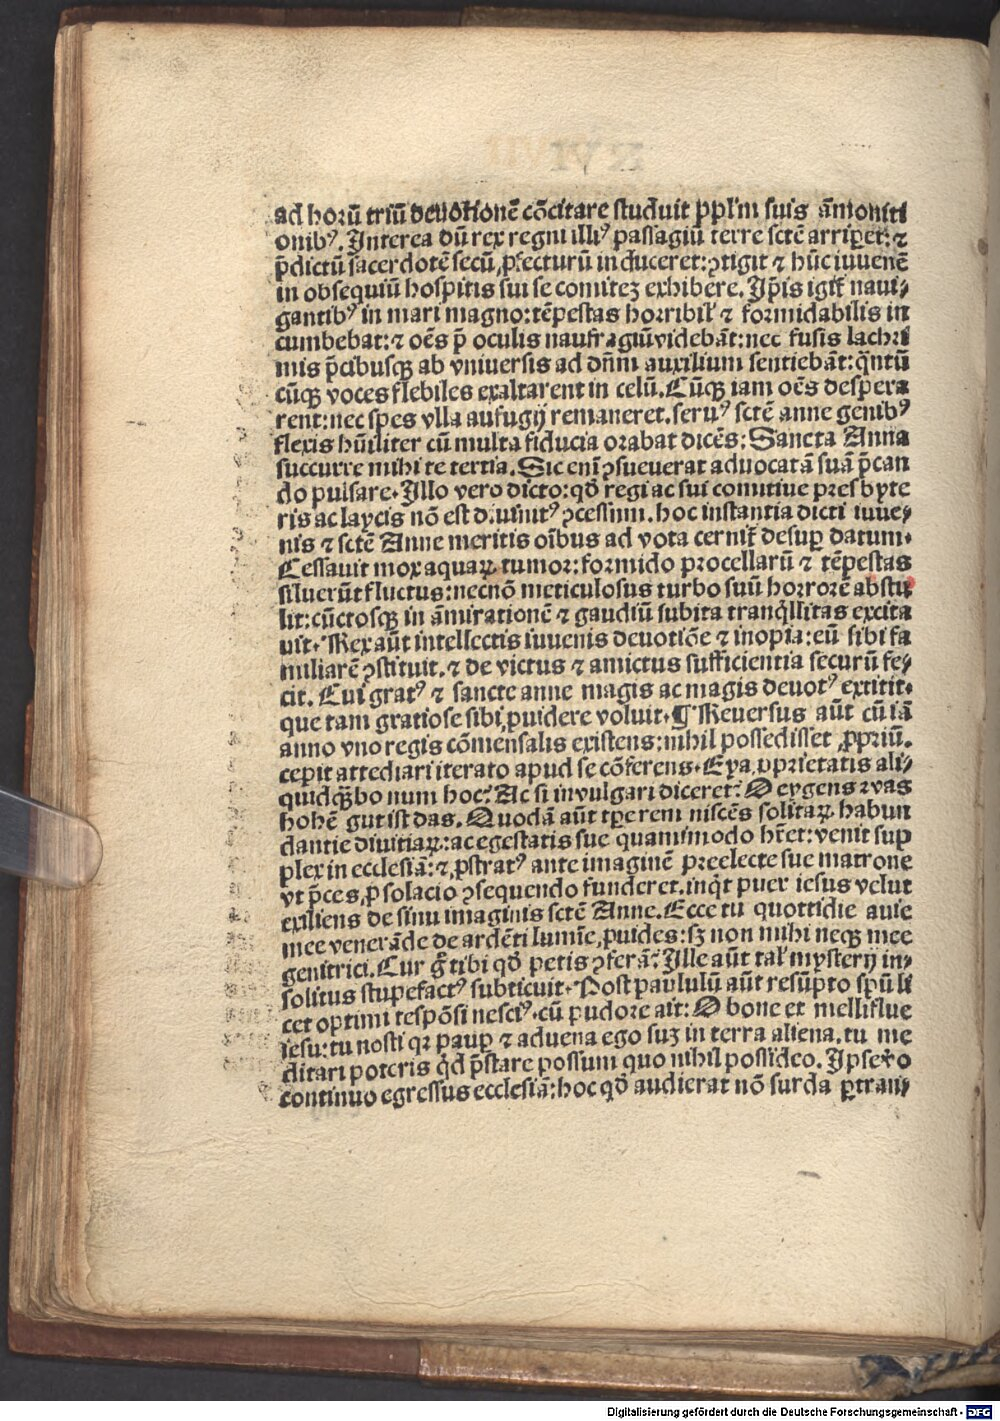 ad horū triū deuotionē cōcitare studuit ppl'm suis āmoniti
onibꝰ. Interea dū rex regni illiꝰ passagiū terre sctē arriperet: ⁊
p̄dictū sacerdotē secū ꝓfecturū induceret: ꝯtigit ⁊ hūc iuuenē
in obsequiū hospitis sui se comitez exhibere. Ip̄is igit̄ naui⸗
gantibꝰ in mari magno: tēpestas horribil' ⁊ formidabilis in
cumbebat: ⁊ oēs p̄ oculis naufragiū videbāt: nec fusis lachri
mis p̄cibusqꝫ ab vniuersis ad dn̄m auxilium sentiebāt: q̄ntū
cūqꝫ voces flebiles exaltarent in celū. Cūqꝫ iam oēs despera
rent: nec spes vlla aufugij remaneret. seruꝰ sctē anne genibꝰ
flexis hūiliter cū multa fiducia orabat dicēs: Sancta Anna
succurre mihi te tertia. Sic enī ꝯsueuerat aduocatā suā p̄can
do pulsare. Illo vero dicto: qđ regi ac sui comitiue presbyte
ris ac laycis nō est diuinitꝰ ꝯcessum. hoc instantia dicti iuue⸗
nis ⁊ sctē Anne meritis oībus ad vota cernit̄ desuꝑ datum.
Cessauit mox aquaꝝ tumor: formido procellarū ⁊ tēpestas
siluerūt fluctus: necnō meticulosus turbo suū horrorē abstu
lit: cūctosqꝫ in āmirationē ⁊ gaudiū subita tranq̄llitas excita
uit. Rex aūt intellectis iuuenis deuotiōe ⁊ inopia: eū sibi fa
miliarē ꝯstituit. ⁊ de victus ⁊ amictus sufficientia securū fe⸗
cit. Cui gratꝰ ⁊ sancte anne magis ac magis deuotꝰ extitit.
que tam gratiose sibi ꝓuidere voluit. ¶ Reuersus aūt cū iā
anno vno regis cōmensalis existens: nihil possedisset ꝓpriū.
cepit attediari iterato apud se cōferens. Eya ꝓprietatis ali⸗
quid qꝫ bonum hoc? Ac si in vulgari diceret? O eygens was
hohē gut ist das. Quodā aūt tꝑe reminiscēs solitaꝝ habun
dantie diuitiaꝝ: ac egestatis sue quammodo hr̄et: venit sup
plex in ecclesiā: ⁊ ꝓstratꝰ ante imaginē preelecte sue matrone
vt p̄ces ꝓ solacio ꝯsequendo funderet. inq̄t puer iesus velut
exiliens de sinu imaginis sctē Anne. Ecce tu quottidie auie
mee venerāde de ardēti lumīe ꝓuides: sꝫ non mihi neqꝫ mee
genitrici. Cur g̊ tibi qđ petis ꝯferā? Ille aūt tal' mysterij in⸗
solitus stupefactꝰ subticuit. Post paululū aūt resūpto spū li
cet optimi respōsi nesciꝰ. cū pudore ait: O bone et melliflue
iesu: tu nosti qꝛ pauꝑ ⁊ aduena ego suꝫ in terra aliena. tu me
ditari poteris q̄d p̄stare possum quo nihil possideo. Ipse ꝟo
continuo egressus ecclesiā: hoc qđ audierat nō surda ꝑtransi⸗
Digitalisierung gefördert durch die Deutsche Forschungsgemeinschaft - DFG